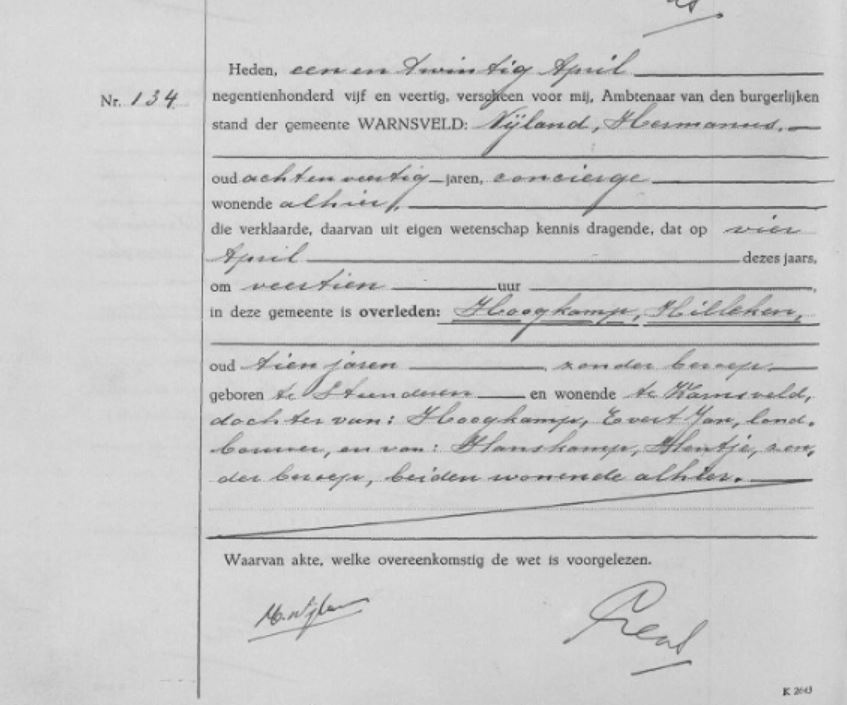 Heden, een en twintig April
Nr. 134
negentienhonderd vijf en veertig, verscheen voor mij, Ambtenaar van den burgerlijken
stand der gemeente WARNSVELD: Nijland, Hermanus,
oud achtenveertig jaren, concierge
wonende alhier,
die verklaarde, daarvan uit eigen wetenschap kennis dragende, dat op vier
April dezes jaars,
om veertien uur ,
in deze gemeente is overleden: Hoogkamp, Hilleken,
oud tien jaren , zonder beroep
geboren te Steenderen en wonende te Warnsveld,
dochter van: Hoogkamp, Evert Jan, land-
bouwer, en van: Hanskamp, Hentje, zon-
der beroep, beiden wonende alhier.
Waarvan akte, welke overeenkomstig de wet is voorgelezen.
K 2643